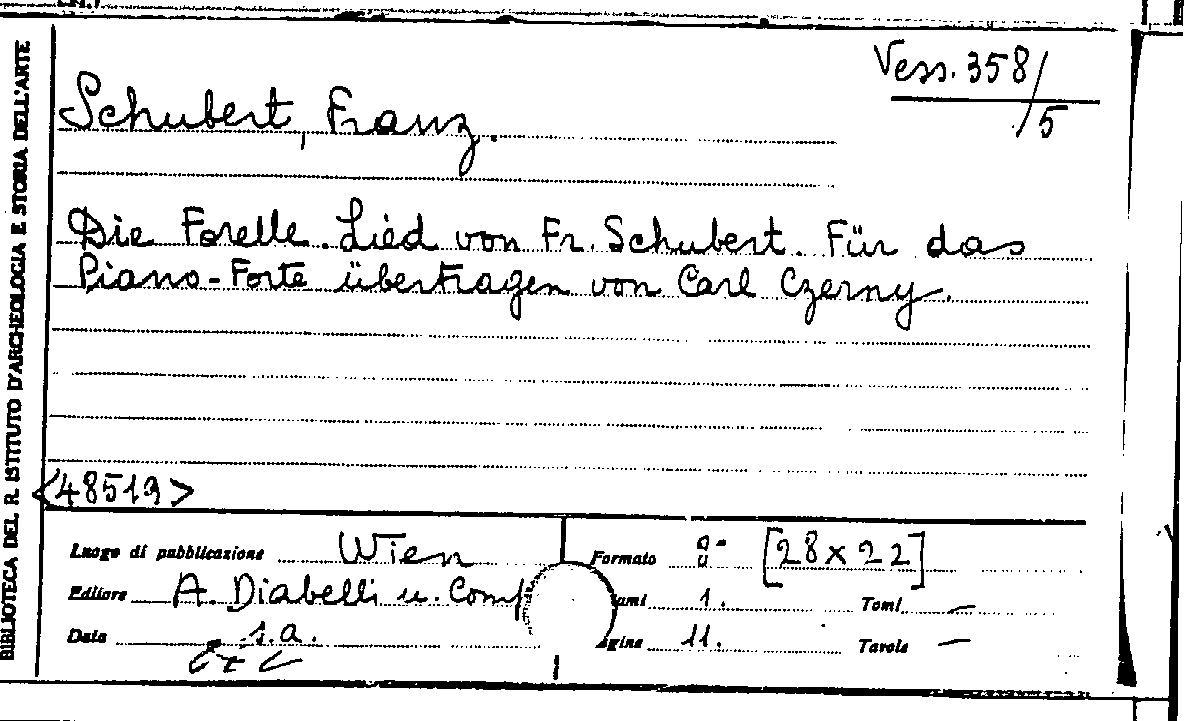 BIBLIOTECA DEL R. ISTITUTO D'ARCHEOLOGIA E STORIA DELL'ARTE
Vess. 358/5
Schubert, Franz.
Die Forelle. Lied von Fr. Schubert. Für das
Piano-Forte übertragen von Carl Czerny.
<48519>
Luogo di pubblicazione Wien
Formato [28x22]
Editore A. Diabelli u. Comp
1. Tomi —
Data s.a.
11. Tavole —